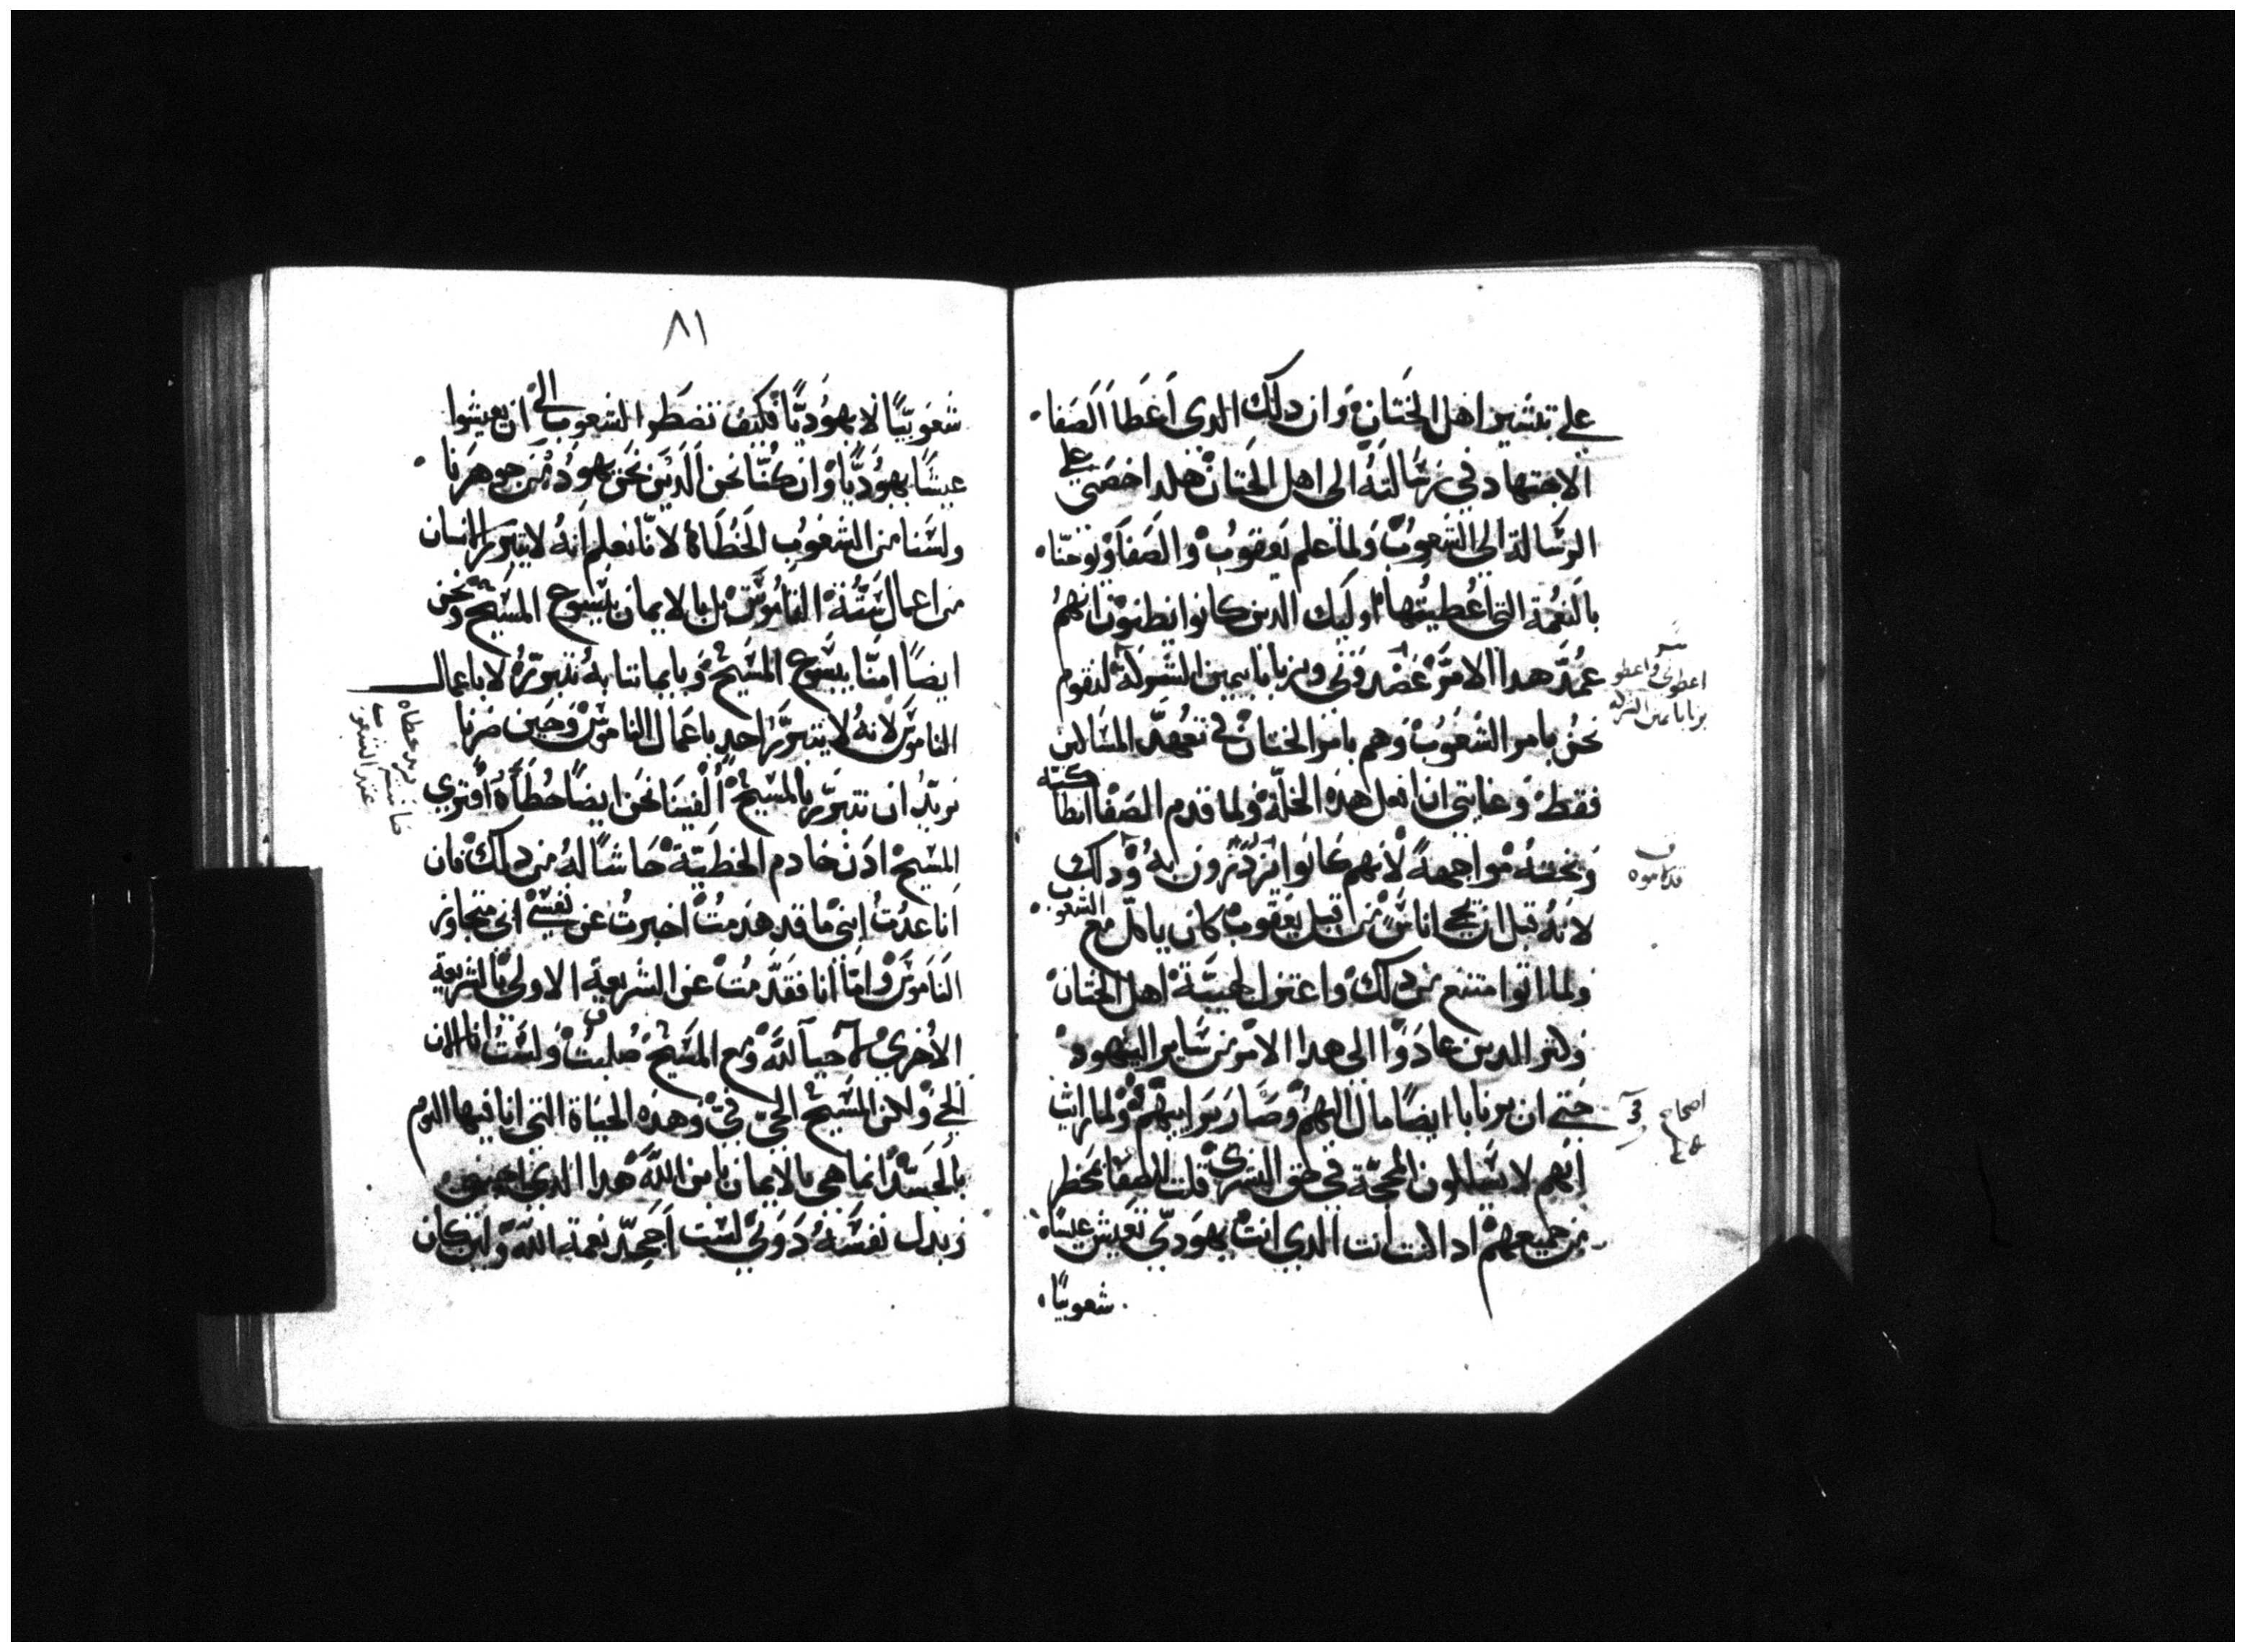 علي تبشير اهل الختان وان دلك الدى اعطا الصفا
الاجتهاد في رسالته الى اهل الختان هلدا خصني علي
الرسالة الي الشعوب ولما علم يعقوب والصفا ويوحنا
بالنعمة التى اعطيتها اوليك الدين كانوا يظنون انهم
عمد هدا الامر عضدوني وبرنابا بيمين الشركة لنقوم
نحن بامر الشعوب وهم بامر الختان في تعهد المساكين
فقط وعنايتي ان افعل هذه الخلة ولما قدم الصفا انطاكية
وبخته مواجهة لانهم كانوا يزدرون به ودلك
لانه قبل ان يجي اناس من قبل يعقوب كان ياكل مع الشعوب
ولما اتوا امتنع من دلك واعتزل لهيبة اهل الختان
ولنر الدين عادوا الى هدا الامر من ساير اليهود
حتى ان برنابا ايضا مال اليهم وصار يرايبهم ولما رايت
انهم لا يسللون المحجة في حق البشرى قلت للصفا بمحظر
من جميعهم اد الانت انت الدي انت يهودي تعيش عيشاه
شعوبيا
اعطوني واعطو
برنابا يمين الشركة
ف
قدلاموه
اصحاح
3
٨١
شعوبيا لا يهوديا فكيف تضطر الشعوب الى ان يعيشوا
عيشا يهوديا وان كنا نحن الدين نحن يهود من جوهرنا
ولسنا من الشعوب الخطاة لانا نعلم انه لا يتبرر الانسان
من اعمال سنة الناموس بل بالايمان بيسوع المسيح ونحن
ايضا امنا بيسوع المسيح وبايماننا به نتبرر لا باعمال
الناموس لانه لا يتبرر احد باعمال الناموس وحين صرنا
نريد ان نتبرر بالمسيح الفينا نحن ايضا خطاة افترى
المسيح ادن خادم الخطية حاشا له من دلك فان
انا عدت ابنى ما قد هدمت اخبرت عن نفسي اني متجاوز
الناموس واما انا فقد مت عن الشريعة الاولي بالشريعة
الاخرى لاحيا لله ومع المسيح صلبت ولست انا الان
الحي ولان المسيح الحي في وهذه الحياة التى انا فيها اليوم
بالجسد انما هي بالايمان بابن الله هدا الدي احبني
وبدل نفسه دوني لست اجحد نعمة الله ولين كان